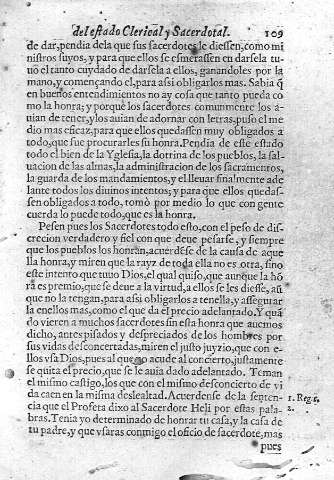 del estado Clerical y Sacerdotal. 109
de dar, pendia dela que sus sacerdotes le diessen, como mi
nistros suyos, y para que ellos se esmerassen en darsela tu-
uo el tanto cuydado de darsela a ellos, ganandoles por la
mano, y començando el, para assi obligarlos mas. Sabia q̃
en buenos entendimientos no ay cosa que tanto pueda co
mo la honra; y porque los sacerdotes comunmente los a-
uian de tener, y los auian de adornar con letras, puso el me
dio mas eficaz, para que ellos quedassen muy obligados a
todo, que fue procurarles su honra. Pendia de este estado
todo el bien de la Yglesia, la dotrina de los pueblos, la sal-
uacion de las almas, la administracion de los sacramentos,
la guarda de los mandamientos, y el lleuar finalmente ade
lante todos los diuinos intentos; y para que ellos quedas-
sen obligados a todo, tomò por medio lo que con gente
cuerda lo puede todo, que es la honra.
Pesen pues los Sacerdotes todo esto, con el peso de dis-
crecion verdadero y fiel con que deue pesarse, y siempre
que los pueblos los honran, acuerdese de la causa de aque
lla honra, y miren que la rayz de toda ella no es otra, sino
este intento que tuuo Dios, el qual quiso, que aunque la hõ
ra es premio, que se deue a la virtud, a ellos se les diesse, aũ
que no la tengan, para assi obligarlos a tenella, y assegurar
la en ellos mas, como el que da el precio adelantado. Y quã
do vieren a muchos sacerdotes sin esta honra que auemos
dicho, antes pisados y despreciados de los hombres por
sus vidas desconcertadas, miren el justo juyzio, que con e-
llos vsa Dios, pues al que no acude al concierto, justamente
se quita el precio, que se le auia dado adelantado. Teman
el mismo castigo, los que con el mismo desconcierto de vi
da caen en la misma deslealtad. Acuerdense de la senten-
cia que el Profeta dixo al Sacerdote Heli por estas pala-
bras. Tenia yo determinado de honrar tu casa, y la casa de
tu padre, y que vsaras conmigo el oficio de sacerdote, mas
pues
1. Reg.
2.